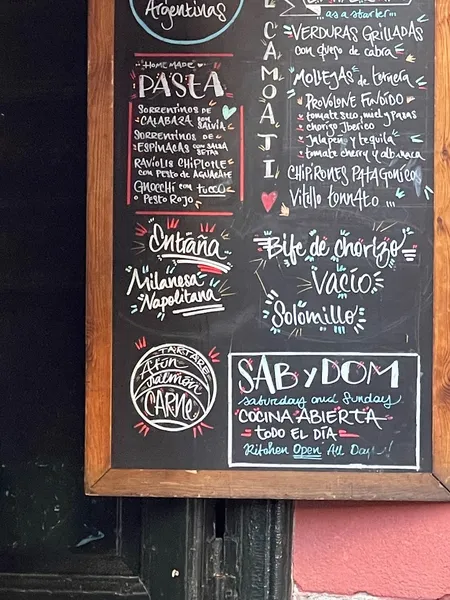 Argentinas
HOME MADE
PASTA
SORRENTINOS DE
CALABAZA con
SALVIA
SORRENTINOS DE
ESPINACAS con SALSA
SETAS
RAVIOLIS CHIPIONE
con PESTO DE AGUACATE
GNOCCHI con tuco o
PESTO ROJO
Entraña
Milanesa
Napolitana
TARTARE
Atún
Salmón
CARNE
CAMOATI
as a starter...
VERDURAS GRILLADAS
con queso de cabra
MOLLEJAS de ternera
PROVOLONE FUNDIDO
tomate seco, miel y pasas
chorizo Iberico
Jalapeño y tequila
tomate cherry y albahaca
CHIPIRONES PATAGONICO
Vitello tonnato ...
Bife de chorizo
Vacío
Solomillo
SAB y DOM
Saturday and Sunday
COCINA ABIERTA
todo EL DÍA
Kitchen Open All Day